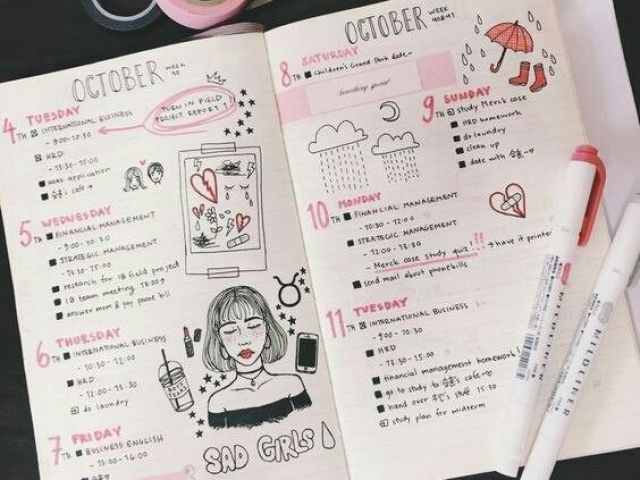 OCTOBER WEEK 40
4TH TUESDAY
INTERNATIONAL BUSINESS
- 9:00 - 10:30
HRD
- 13:30 - 15:00
TURN IN FIELD
PROJECT REPORT !!
5TH WEDNESDAY
FINANCIAL MANAGEMENT
- 9:00 - 10:30
STRATEGIC MANAGEMENT
- 13:30 - 15:00
research for IB field project
IB team meeting
answer mom & pay phone bill
6TH THURSDAY
INTERNATIONAL BUSINESS
- 10:30 - 12:00
HRD
- 12:00 - 13:30
do laundry
7TH FRIDAY
BUSINESS ENGLISH
SAD GIRLS
OCTOBER WEEK 40&41
8TH SATURDAY
Children's Grand Park date~
Something special
9TH SUNDAY
study Merck case
HRD homework
do laundry
clean up
date with
10TH MONDAY
FINANCIAL MANAGEMENT
- 10:30 - 12:00
STRATEGIC MANAGEMENT
- 12:00 - 13:30
- Merck case study quiz!!! → have it printed
send mail about phonebills
11TH TUESDAY
INTERNATIONAL BUSINESS
- 9:00 - 10:30
HRD
- 13:30 - 15:00
financial management homework!
go to study to 's cafe~
hand over
study plan for midterm
MILDLINER
MILDLINER